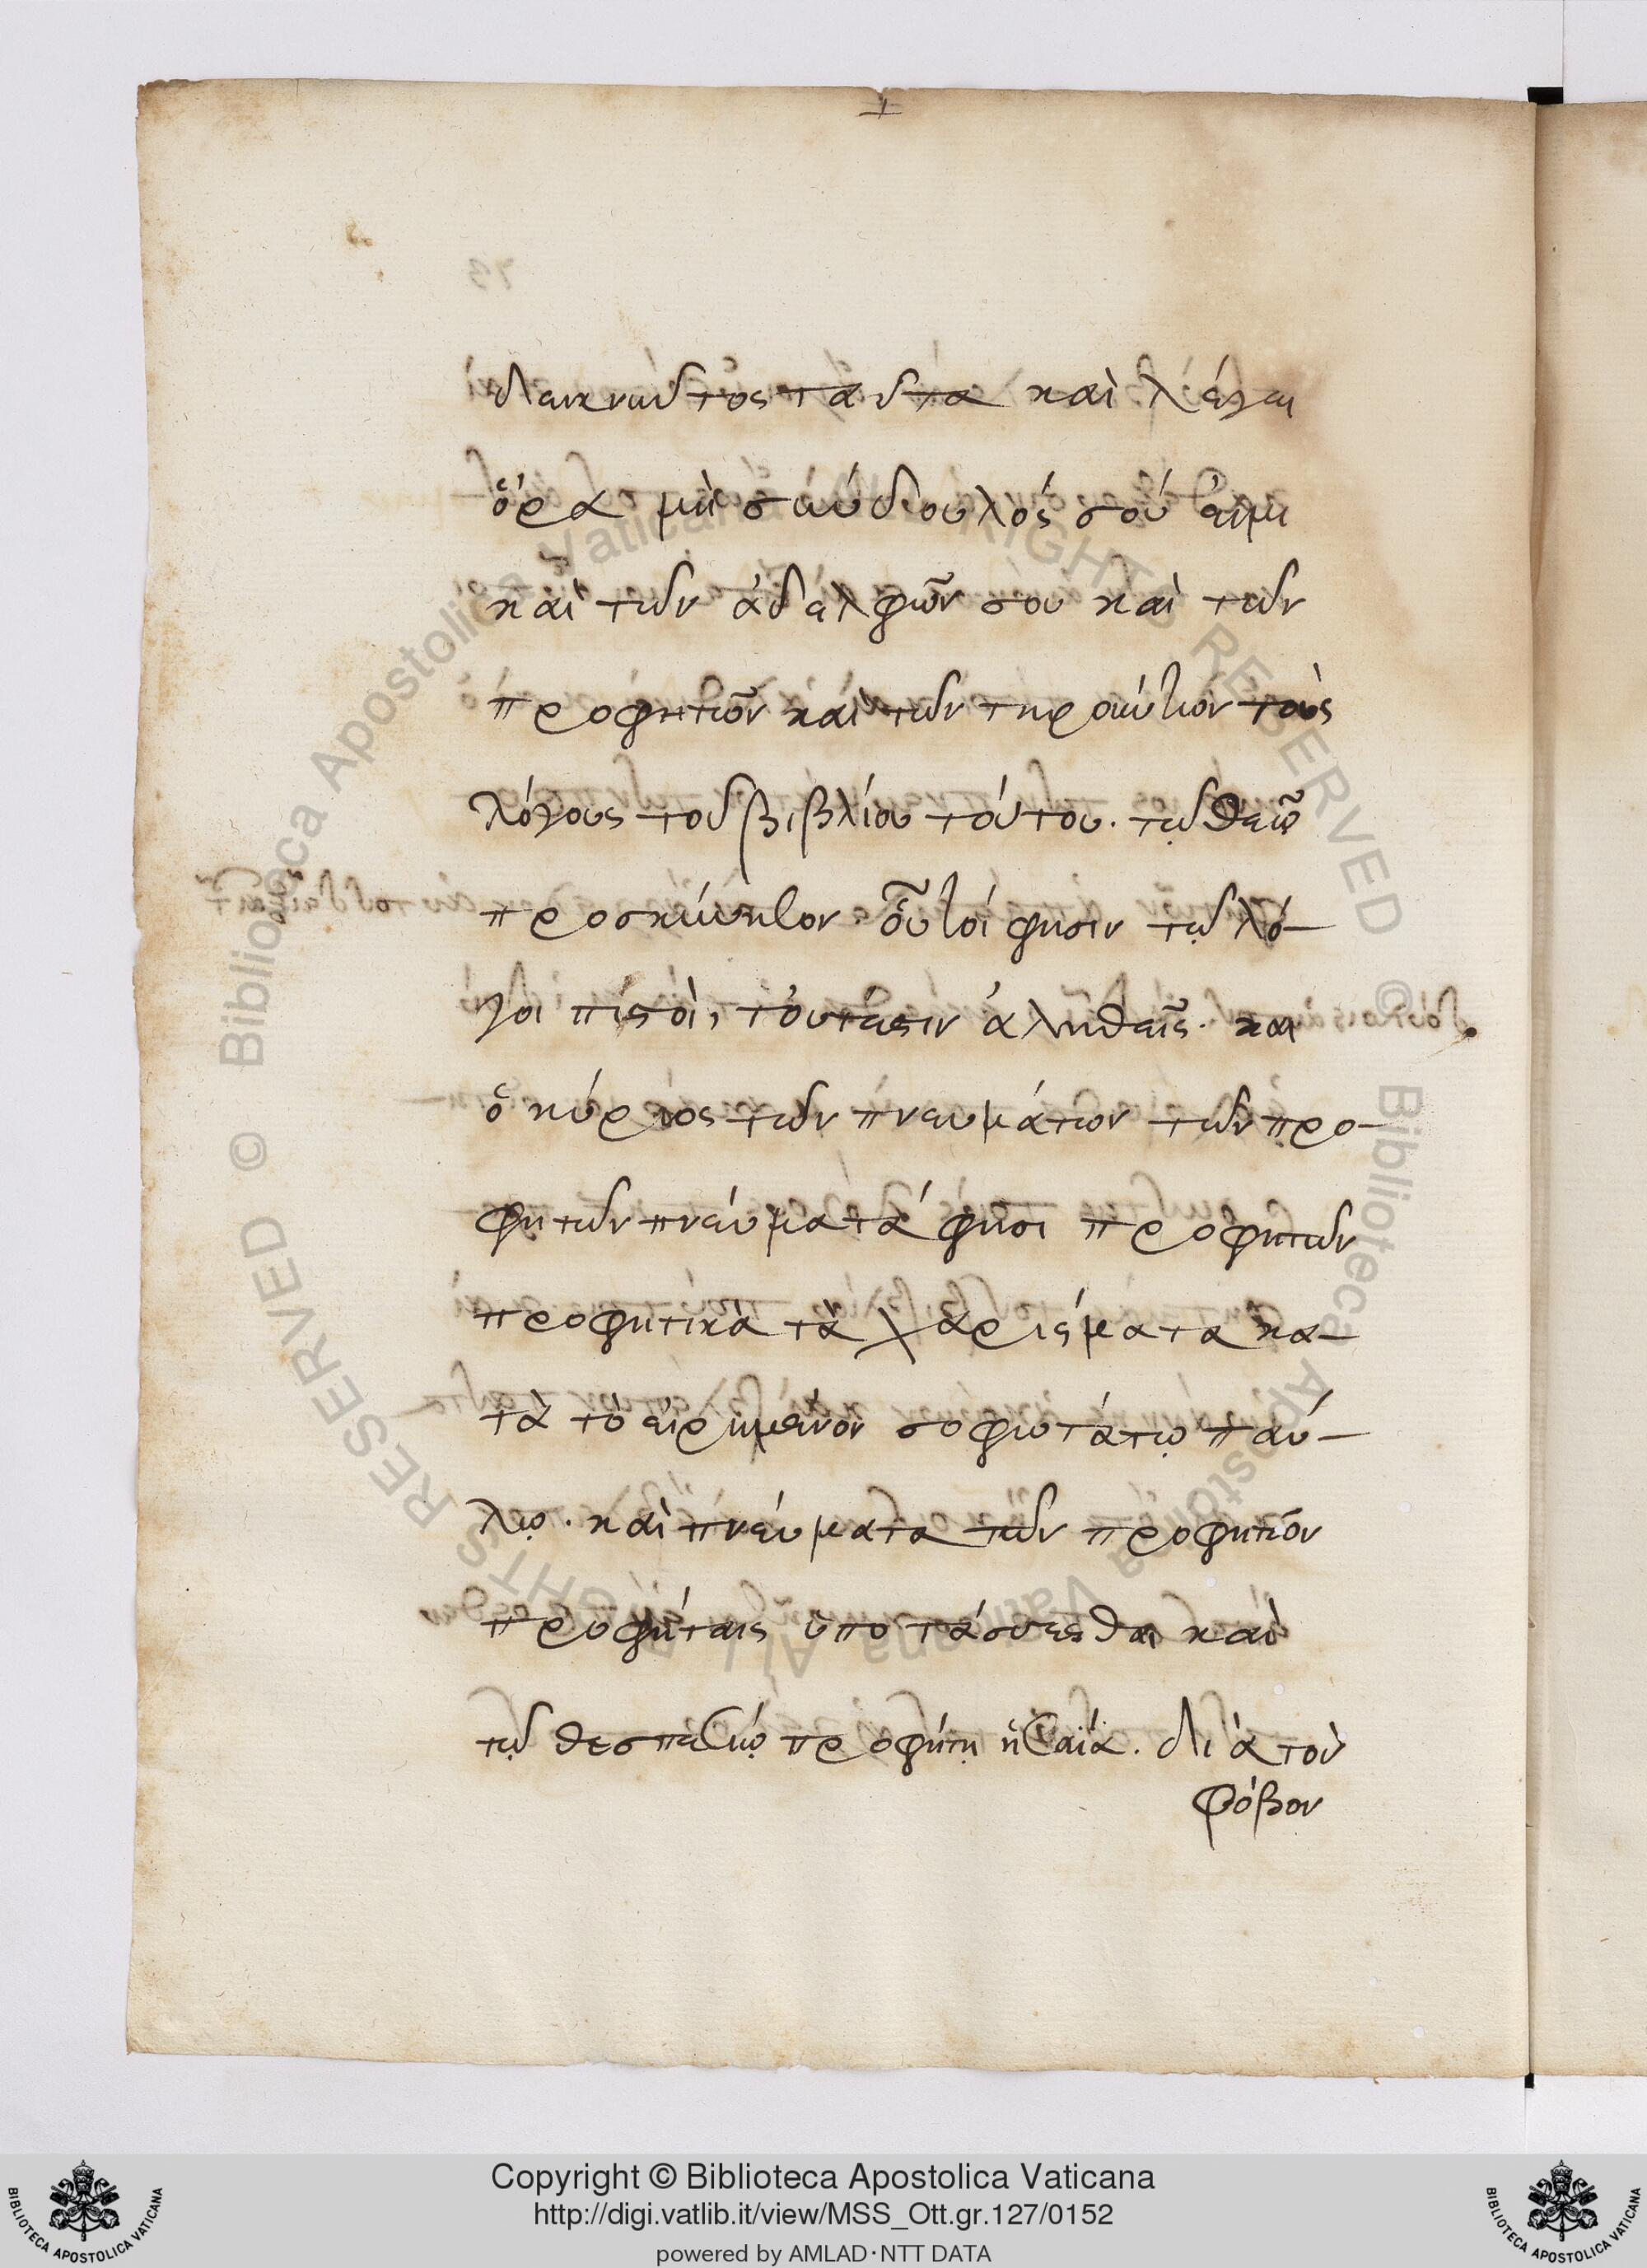 δεικνῦντος ταῦτα καὶ λέγει
ὅρα μὴ σεύνδουλός σού εἰμι
καὶ τῶν ἀδελφῶν σου καὶ τῶν
προφητῶν καὶ τῶν τηρούντων τοὺς
λόγους τοῦ βιβλίου τούτου. τῷ θεῷ
προσκύνησον. οὗτοί φησιν τῷ λό-
γοι πιστοὶ, τουτέστιν ἀληθεῖς. και
ὁ κύριος τῶν πνευμάτων τῶν προ-
φητῶν πνεύματά φησι προφητῶν
προφητικὰ τὰ χαρίσματα κα-
τὰ τὸ εἰρημένον σοφωτάτῳ παύ-
λῳ. καὶ πνεύματα τῶν προφητῶν
προφήταις ὑποτάσσεσθαι καὶ
τῷ θεσπεσίῳ προφήτῃ ἡσαΐᾳ. διὰ τοὺ
φόβον
Copyright © Biblioteca Apostolica Vaticana
http://digi.vatlib.it/view/MSS_Ott.gr.127/0152
powered by AMLAD·NTT DATA
BIBLIOTECA APOSTOLICA VATICANA
BIBLIOTECA APOSTOLICA VATICANA